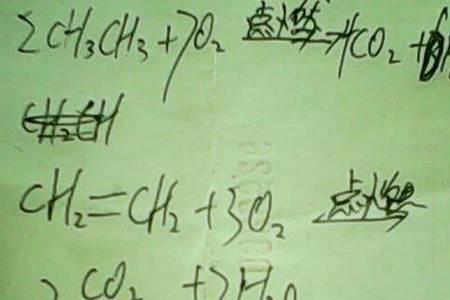 2CH₃CH₃+7O₂ 点燃→ 4CO₂+
CH₂=CH₂+3O₂ 点燃→
2CO₂+2H₂O